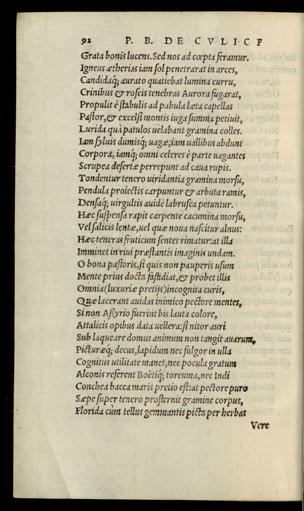 92 P. B. DE CVLICE
Grata bonis lucens. Sed nos ad cœpta feramur.
Igneus ætherias iam sol penetrarat in arces,
Candidaq; aurato quatiebat lumina curru,
Crinibus & roseis tenebras Aurora fugarat,
Propulit è stabulis ad pabula læta capellas
Pastor, & excelsi montis iuga summa petiuit,
Lurida quà patulos uelabant gramina colles.
Iam syluis dumisq; uagæ, iam uallibus abdunt
Corpora, iamq; omni celeres è parte uagantes
Scrupea desertæ perrepunt ad caua rupis.
Tondentur tenero uiridantia gramina morsu,
Pendula proiectis carpuntur & arbuta ramis,
Densaq; uirgultis auidè labrusca petuntur.
Hæc suspensa rapit carpente cacumina morsu,
Vel salicis lentæ, uel quæ noua nascitur alnus:
Hæc teneras fruticum sentes rimatur: at illa
Imminet in riui præstantis imaginis undam.
O bona pastoris, si quis non pauperis usum
Mente prius docta fastidiat, & probet illis
Omnia (luxuriæ pretijs) incognita curis,
Quæ lacerant auidas inimico pectore mentes,
Si non Assyrio fuerint bis lauta colore,
Attalicis opibus data uellera: si nitor auri
Sub laqueare domus animum non tangit auarum,
Picturæq; decus, lapidum nec fulgor in ulla
Cognitus utilitate manet, nec pocula gratum
Alconis referent Boëtiq; toreuma, nec Indi
Conchea bacca maris pretio est: at pectore puro
Sæpe super tenero prosternit gramine corpus,
Florida cum tellus gemmantis picta per herbas
Vere